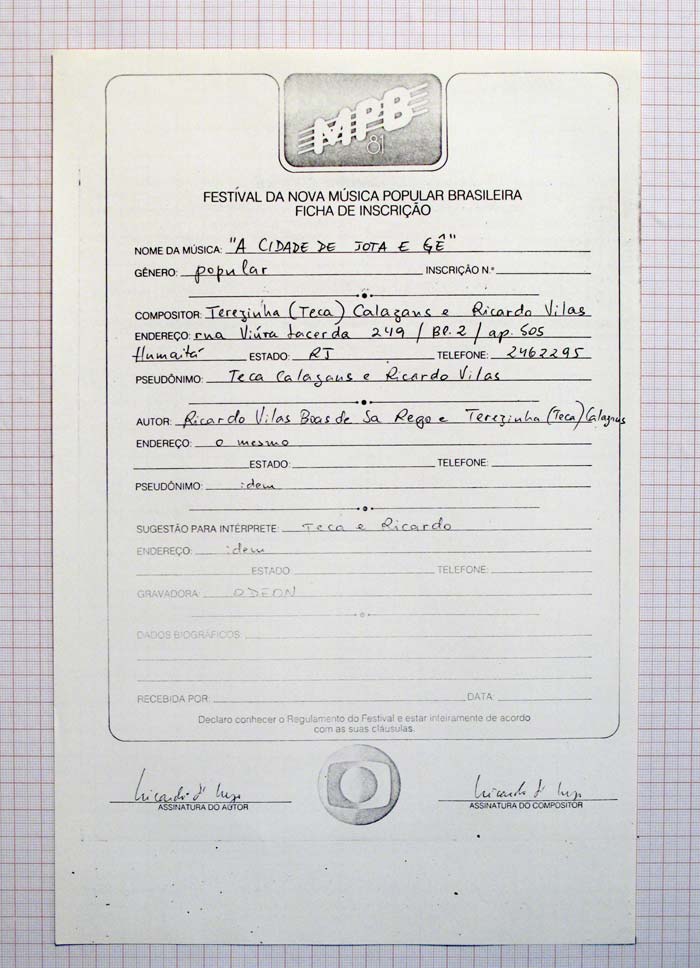 MPB
81
FESTIVAL DA NOVA MÚSICA POPULAR BRASILEIRA
FICHA DE INSCRIÇÃO
NOME DA MÚSICA: "A CIDADE DE JOTA E GÊ"
GÊNERO: popular INSCRIÇÃO N.º
COMPOSITOR: Terezinha (Teca) Calazans e Ricardo Vilas
ENDEREÇO: rua Viúva Lacerda 249 / Bl. 2 / ap. 505
Humaitá ESTADO: RJ TELEFONE: 2462295
PSEUDÔNIMO: Teca Calazans e Ricardo Vilas
AUTOR: Ricardo Vilas Boas de Sa Rego e Terezinha (Teca) Calazans
ENDEREÇO: o mesmo
ESTADO: TELEFONE:
PSEUDÔNIMO: idem
SUGESTÃO PARA INTÉRPRETE: Teca e Ricardo
ENDEREÇO: idem
ESTADO: TELEFONE:
GRAVADORA: ODEON
DADOS BIOGRÁFICOS:
RECEBIDA POR: DATA:
Declaro conhecer o Regulamento do Festival e estar inteiramente de acordo
com as suas cláusulas.
ASSINATURA DO AUTOR ASSINATURA DO COMPOSITOR